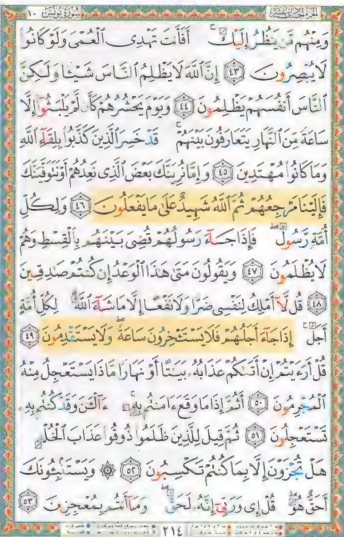 سورة يونس ١٠
وَمِنْهُم مَّن يَنظُرُ إِلَيْكَ ۚ أَفَأَنتَ تَهْدِى الْعُمْىَ وَلَوْ كَانُوا
لَا يُبْصِرُونَ ﴿٤٣﴾ إِنَّ اللَّهَ لَا يَظْلِمُ النَّاسَ شَيْئًا وَلَٰكِنَّ
النَّاسَ أَنفُسَهُمْ يَظْلِمُونَ ﴿٤٤﴾ وَيَوْمَ يَحْشُرُهُمْ كَأَن لَّمْ يَلْبَثُوا إِلَّا
سَاعَةً مِّنَ النَّهَارِ يَتَعَارَفُونَ بَيْنَهُمْ ۚ قَدْ خَسِرَ الَّذِينَ كَذَّبُوا بِلِقَاءِ اللَّهِ
وَمَا كَانُوا مُهْتَدِينَ ﴿٤٥﴾ وَإِمَّا نُرِيَنَّكَ بَعْضَ الَّذِى نَعِدُهُمْ أَوْ نَتَوَفَّيَنَّكَ
فَإِلَيْنَا مَرْجِعُهُمْ ثُمَّ اللَّهُ شَهِيدٌ عَلَىٰ مَا يَفْعَلُونَ ﴿٤٦﴾ وَلِكُلِّ
أُمَّةٍ رَّسُولٌ ۖ فَإِذَا جَاءَ رَسُولُهُمْ قُضِىَ بَيْنَهُم بِالْقِسْطِ وَهُمْ
لَا يُظْلَمُونَ ﴿٤٧﴾ وَيَقُولُونَ مَتَىٰ هَٰذَا الْوَعْدُ إِن كُنتُمْ صَادِقِينَ
﴿٤٨﴾ قُل لَّا أَمْلِكُ لِنَفْسِى ضَرًّا وَلَا نَفْعًا إِلَّا مَا شَاءَ اللَّهُ ۗ لِكُلِّ أُمَّةٍ
أَجَلٌ ۚ إِذَا جَاءَ أَجَلُهُمْ فَلَا يَسْتَـْٔخِرُونَ سَاعَةً ۖ وَلَا يَسْتَقْدِمُونَ ﴿٤٩﴾
قُلْ أَرَءَيْتُمْ إِنْ أَتَىٰكُمْ عَذَابُهُ بَيَٰتًا أَوْ نَهَارًا مَّاذَا يَسْتَعْجِلُ مِنْهُ
الْمُجْرِمُونَ ﴿٥٠﴾ أَثُمَّ إِذَا مَا وَقَعَ ءَامَنتُم بِهِ ۚ ءَآلْـَٰٔنَ وَقَدْ كُنتُم بِهِ
تَسْتَعْجِلُونَ ﴿٥١﴾ ثُمَّ قِيلَ لِلَّذِينَ ظَلَمُوا ذُوقُوا عَذَابَ الْخُلْدِ
هَلْ تُجْزَوْنَ إِلَّا بِمَا كُنتُمْ تَكْسِبُونَ ﴿٥٢﴾ ۞ وَيَسْتَنبِـُٔونَكَ
أَحَقٌّ هُوَ ۖ قُلْ إِى وَرَبِّىٓ إِنَّهُ لَحَقٌّ ۖ وَمَا أَنتُم بِمُعْجِزِينَ ﴿٥٣﴾
٢١٤